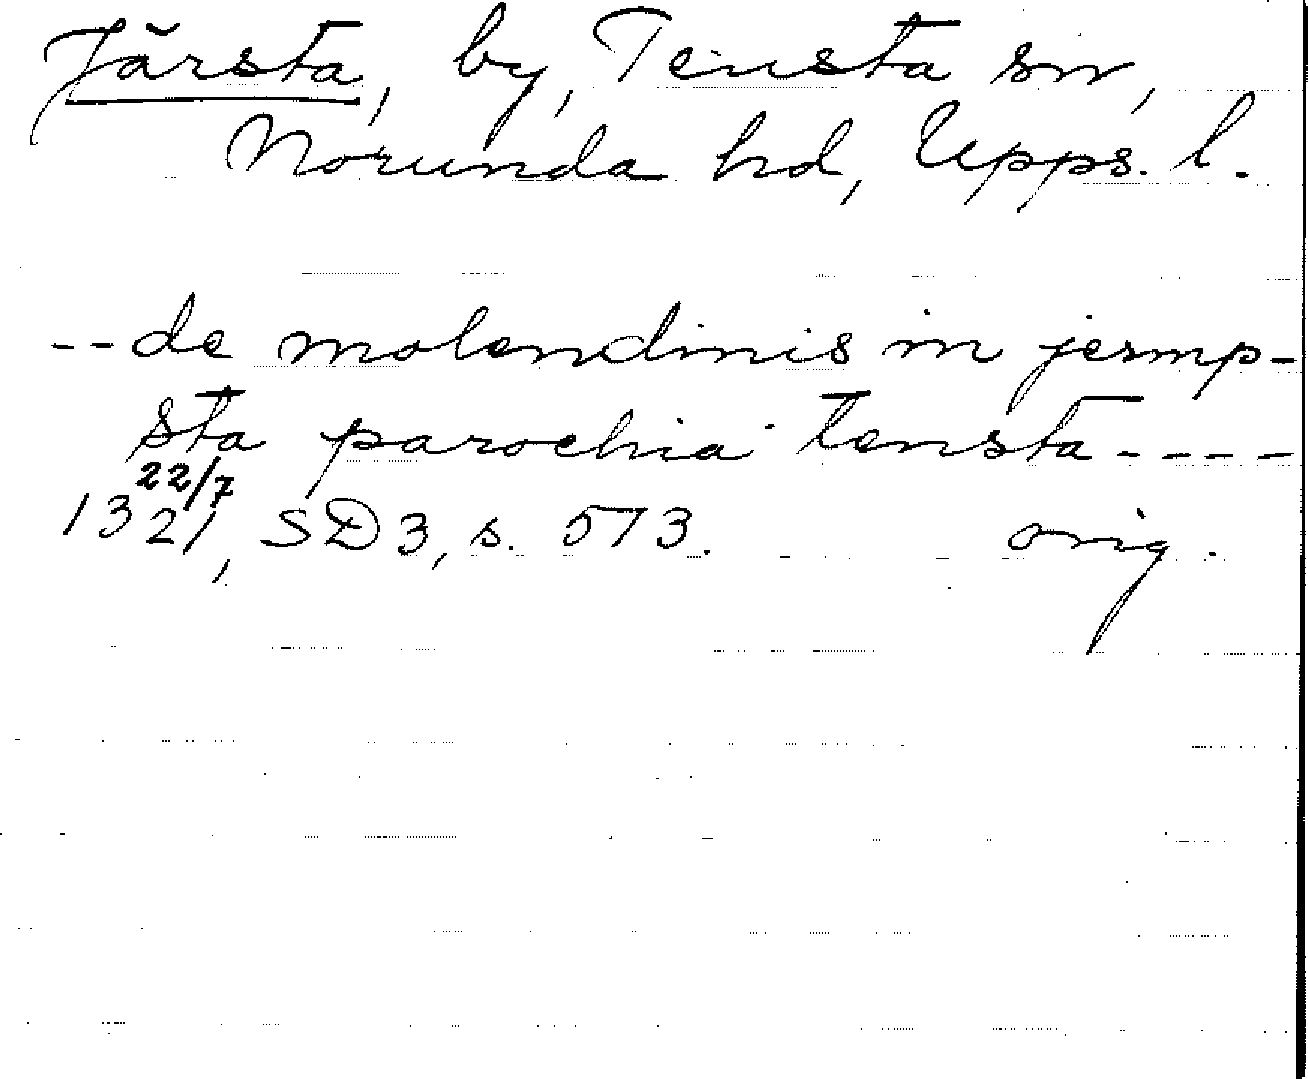 Järsta, by, Tensta sn,
Norunda hd, Upps. l.
--de molendinis in jermp-
sta parochia tensta----
22/7
1321, SD3, s. 573. orig.